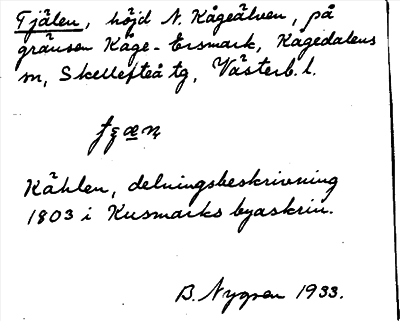 Tjälen, höjd N. Kågeälven, på
gränsen Kåge-Ersmark, Kågedalens
sn, Skellefteå tg, Västerb. l.
Kählen, delningsbeskrivning
1803 i Kusmarks byaskrin.
B. Nygren 1933.